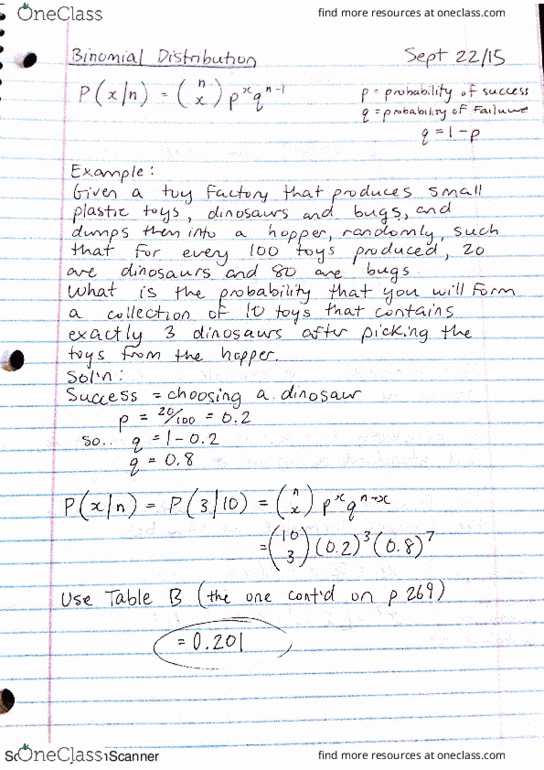 OneClass find more resources at oneclass.com
Binomial Distribution Sept 22/15
P(x|n) = (n x) p^x q^n-1 p = probability of success
q = probability of failure
q = 1 - p
Example:
Given a toy factory that produces small
plastic toys, dinosaurs and bugs, and
dumps them into a hopper, randomly, such
that for every 100 toys produced, 20
are dinosaurs and 80 are bugs
What is the probability that you will form
a collection of 10 toys that contains
exactly 3 dinosaurs after picking the
toys from the hopper.
Sol'n:
Success = choosing a dinosaur
p = 20/100 = 0.2
so.. q = 1 - 0.2
q = 0.8
P(x|n) = P(3|10) = (n x) p^x q^n-x
= (10 3) (0.2)^3 (0.8)^7
Use Table B (the one cont'd on p 269)
= 0.201
OneClass Scanner find more resources at oneclass.com